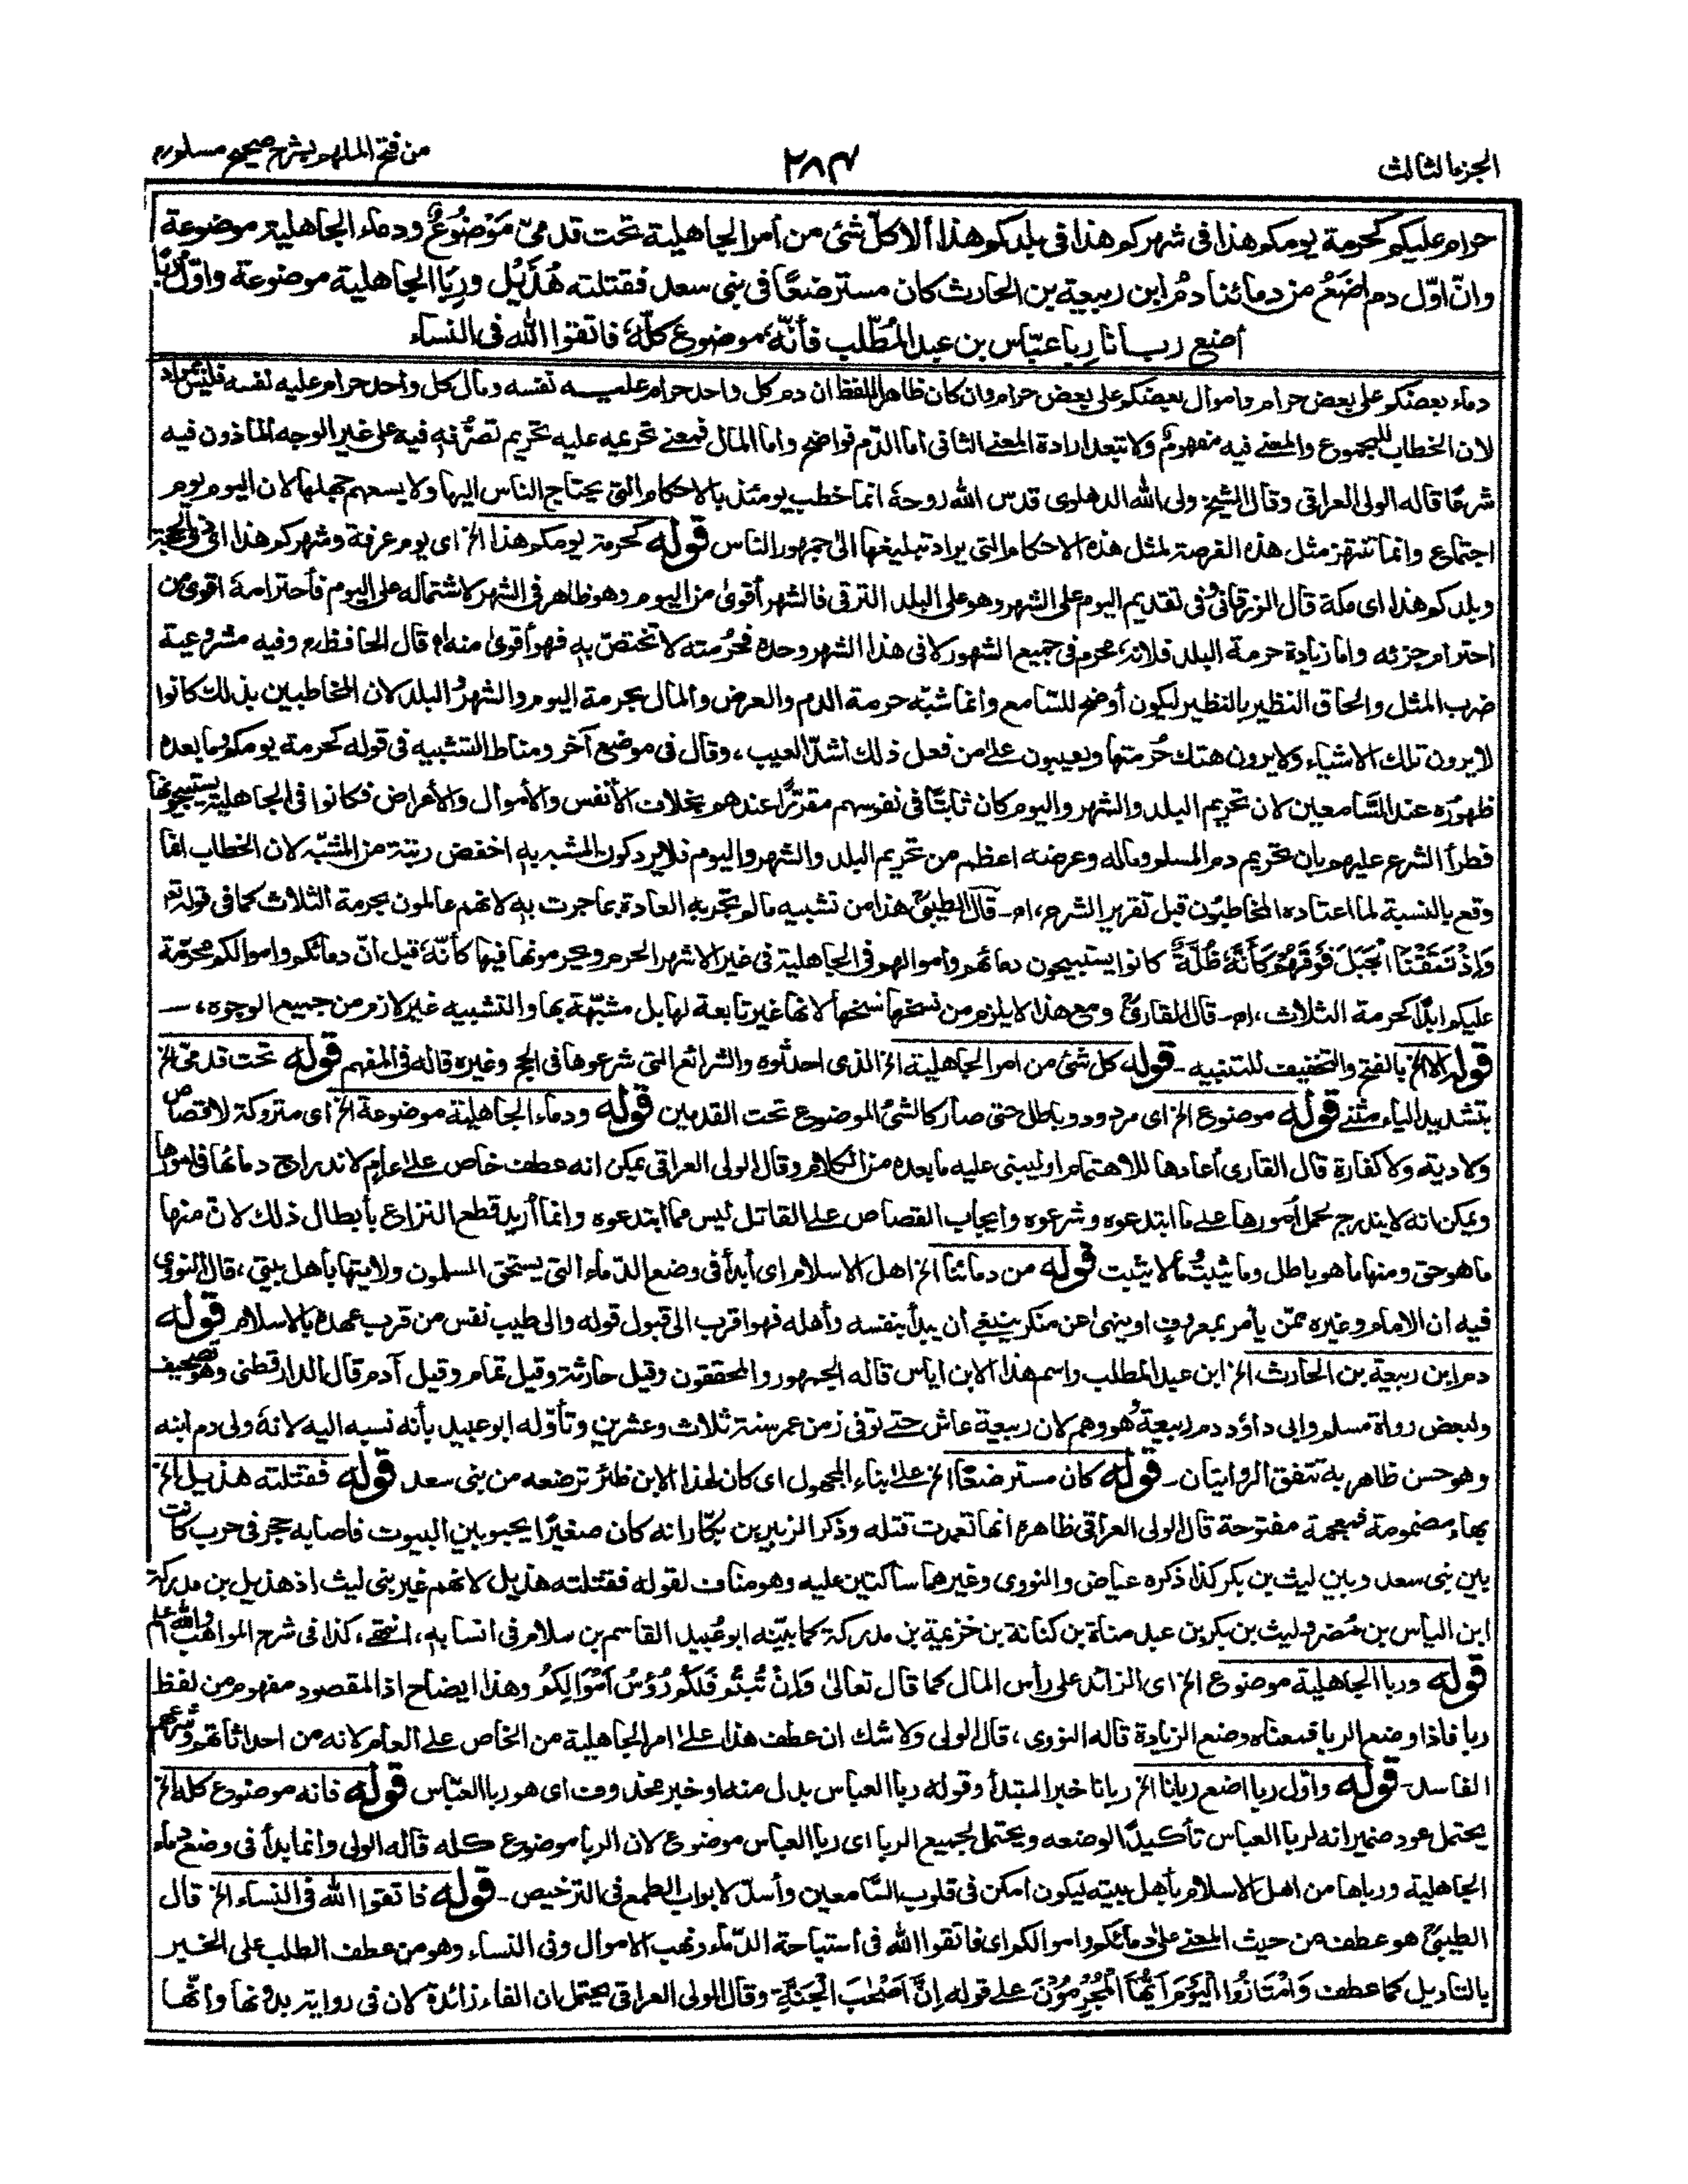 الجزء الثالث
٢٨٣
من فتح الملهم بشرح صحيح مسلم
حرام عليكم كحرمة يومكم هذا فى شهركم هذا فى بلدكم هذا ألا كلّ شئ من أمر الجاهلية تحت قدمىّ مَوْضُوعٌ ودماء الجاهلية موضوعة
وانّ اوّل دم اضَعُ من دمائنا دمُ ابن ربيعة بن الحارث كان مسترضعًا فى بنى سعد فقتلته هُذَيْل ورِبَا الجاهلية موضوعة واوّل رِبًا
أضع ربانا ربا عبّاس بن عبد المُطّلب فأنّه موضوع كلّه فاتقوا الله فى النساء
دماء بعضكم على بعض حرام واموال بعضكم على بعض حرام وان كان ظاهر اللفظ ان دم كل واحد حرام عليه نفسه ومال كل واحد حرام عليه نفسه فليس بمراد
لان الخطاب للمجموع والمعنى فيه مفهوم ولا تبعد ارادة المعنى الثانى أما الدّم فواضح واما المال فمعنى تحريمه عليه تحريم تصرُّفه فيه على غير الوجه الماذون فيه
شرعًا قاله الولى العراقى وقال الشيخ ولى الله الدهلوى قدس الله روحه انما خطب يومئذ بالاحكام التى يحتاج الناس اليها ولا يسعهم جهلها لان اليوم يوم
اجتماع وانما تنتهز مثل هذه الفرصة لمثل هذه الاحكام التى يراد تبليغها الى جمهور الناس قوله كحرمة يومكم هذا الخ اى يوم عرفة وشهركم هذا اى ذى الحجة
وبلدكم هذا اى مكة قال الزرقانى فى تقديم اليوم على الشهر وهو على البلد الترقى فالشهر أقوى من اليوم وهو ظاهر فى الشهر لاشتماله على اليوم فأحترامه اقوى من
احترام جزئه واما زيادة حرمة البلد فلانه محرم فى جميع الشهور لا فى هذا الشهر وحده فحُرمته لا تختصّ به فهو أقوى منه اه قال الحافظ رح وفيه مشروعية
ضرب المثل والحاق النظير بالنظير ليكون أوضح للسّامع وانما شبّه حرمة الدم والعرض والمال بحرمة اليوم والشهر والبلد لان المخاطبين بذلك كانوا
لا يرون تلك الاشياء ولا يرون هتك حُرمتها ويعيبون على من فعل ذلك اشدّ العيب، وقال فى موضع آخر ومناط التشبيه فى قوله كحرمة يومكم وما بعده
ظهوره عند السَّامعين لان تحريم البلد والشهر واليوم كان ثابتًا فى نفوسهم مقررًا عندهم بخلاف الأنفس والأموال والأعراض فكانوا فى الجاهلية يستبيحونها
فطرأ الشرع عليهم بان تحريم دم المسلم وماله وعرضه اعظم من تحريم البلد والشهر واليوم فلا يرد كون المشبه به اخفض رتبة من المشبّه لان الخطاب انما
وقع بالنسبة لما اعتاده المخاطبون قبل تقرير الشرع، اه- قال الطيبى هذا من تشبيه ما لم تجر به العادة بما جرت به لانهم عالمون بحرمة الثلاث كما فى قوله تعالى
وَاِذْ نَتَقْنَا الْجَبَلَ فَوْقَهُمْ كَأَنَّهٗ ظُلَّةٌ كانوا يستبيحون دمائهم وأموالهم فى الجاهلية فى غير الاشهر الحرم ويحرمونها فيها كأنّه قيل انّ دمائكم واموالكم محرّمة
عليكم ابدًا كحرمة الثلاث، اه- قال القارى ومع هذا لا يلزم من نسخها نسخها لانها غير تابعة لها بل مشبّهة بها والتشبيه غير لازم من جميع الوجوه، —
قوله الا الخ بالفتح والتخفيف للتنبيه - قوله كل شئ من امر الجاهلية الخ الذى احدثوه والشرائع التى شرعوها فى الحج وغيره قاله فى المفهم قوله تحت قدمىّ الخ
بتشديد الياء مثنى قوله موضوع الخ اى مردود وباطل حتى صار كالشئ الموضوع تحت القدمين قوله ودماء الجاهلية موضوعة الخ اى متروكة لا قصاص
ولا دية ولا كفارة قال القارى أعادها للاهتمام او ليبنى عليه ما بعده من الكلام وقال الولى العراقى يمكن انه عطف خاص على عام لاندراج دمائها فى امورها
ويمكن انه لا يندرج بحمل أمورها على ما ابتدعوه وشرعوه وايجاب القصاص على القاتل ليس مما ابتدعوه وانما أريد قطع النزاع بأبطال ذلك لان منها
ما هو حق ومنها ما هو باطل وما يثبت وما لا يثبت قوله من دمائنا الخ اهل الاسلام اى أبدأ فى وضع الدّماء التى يستحق المسلمون ولايتها بأهل بيتى، قال النووى
فيه ان الامام وغيره ممّن يأمر بمعروف او ينهى عن منكر ينبغى أن يبدأ بنفسه وأهله فهو اقرب الى قبول قوله والى طيب نفس من قرب عهده بالاسلام قوله
دم ابن ربيعة بن الحارث الخ ابن عبد المطلب واسم هذا الابن اياس قاله الجمهور والمحققون وقيل حارثة وقيل تمام وقيل آدم قال الدارقطنى وهو تصحيف
ولبعض رواة مسلم وابى داؤد دم ربيعة وهو وهم لان ربيعة عاش حتى توفى زمن عمر سنة ثلاث وعشرين وتأوّله ابو عبيد بأنه نسبه اليه لانه ولى دم ابنه
وهو حسن ظاهر به تتفق الروايتان - قوله كان مسترضعًا الخ على بناء المجهول اى كان لهذا الابن ظئر ترضعه من بنى سعد قوله فقتلته هذيل الخ
بهاء مضمومة فمعجمة مفتوحة قال الولى العراقى ظاهره انها تعمدت قتله وذكر الزبير بن بكّار انه كان صغيرًا يحبو بين البيوت فاصابه حجر فى حرب كانت
بين بنى سعد وبين ليث بن بكر كذا ذكره عياض والنووى وغيرهما ساكتين عليه وهو مناف لقوله فقتلته هذيل لانهم غير بنى ليث اذ هذيل بن مدركة
ابن الياس بن مُضر وليث بن بكر بن عبد مناة بن كنانة بن خزيمة بن مدركة كما بيّنه ابو عُبيد القاسم بن سلام فى انسابه، انتهى، كذا فى شرح المواهب والله اعلم
قوله وربا الجاهلية موضوع الخ اى الزائد على رأس المال كما قال تعالى وَاِنْ تُبْتُمْ فَلَكُمْ رُؤُسُ اَمْوَالِكُمْ وهذا ايضاح اذ المقصود مفهوم من لفظ
ربا فاذا وضع الربا فمعناه وضع الزيادة قاله النووى، قال الولى ولا شك ان عطف هذا على امر الجاهلية من الخاص على العام لانه من احداثاتهم وشرعهم
الفاسد - قوله واوّل ربا اضع ربانا الخ ربانا خبر المبتدأ وقوله ربا العباس بدل منه او خبر محذوف اى هو ربا العبّاس قوله فانه موضوع كله الخ
يحتمل عود ضمير انه لربا العباس تأكيدًا لوضعه ويحتمل لجميع الربا اى ربا العباس موضوع لان الربا موضوع كله قاله الولى وانما بدأ فى وضع دماء
الجاهلية ورباها من اهل الاسلام بأهل بيته ليكون امكن فى قلوب السّامعين وأسدّ لابواب الطمع فى الترخيص - قوله فاتقوا الله فى النساء الخ قال
الطيبى هو عطف من حيث المعنى على دمائكم واموالكم اى فاتقوا الله فى أستباحة الدّماء ونهب الاموال وفى النساء وهو من عطف الطلب على الخبر
بالتاويل كما عطف وَامْتَازُوا الْيَوْمَ اَيُّهَا الْمُجْرِمُوْنَ على قوله اِنَّ اَصْحٰبَ الْجَنَّةِ وقال الولى العراقى يحتمل ان الفاء زائدة لان فى رواية بدونها وانّها